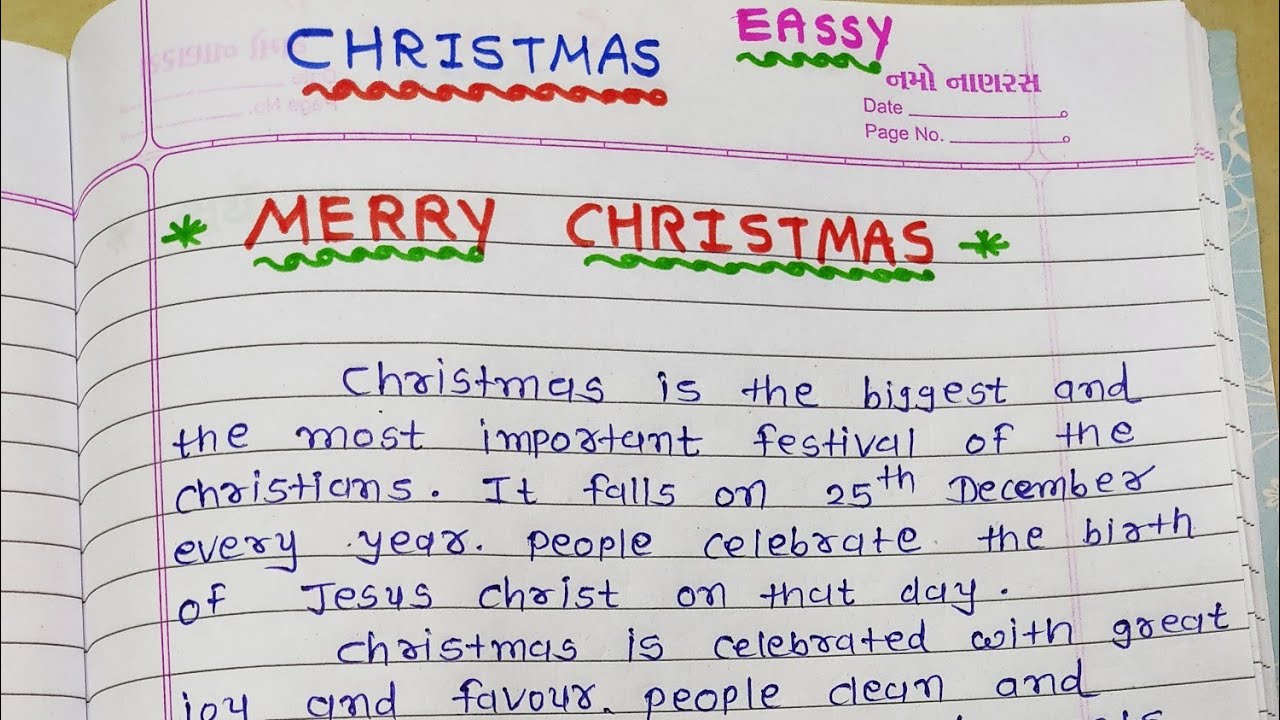 CHRISTMAS EASSY
નમો નાણરસ
Date
Page No.
MERRY CHRISTMAS
Christmas is the biggest and
the most important festival of the
christians. It falls on 25th December
every year. people celebrate the birth
of Jesus christ on that day.
christmas is celebrated with great
joy and favour. people clean and